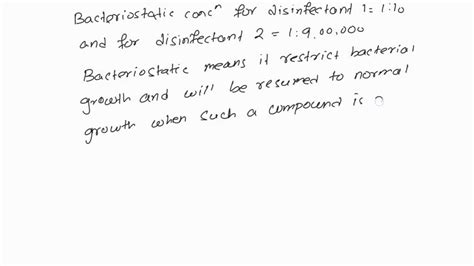 Bacteriostatic concⁿ for disinfectant 1 = 1:10
and for disinfectant 2 = 1:9,00,000
Bacteriostatic means it restrict bacterial
growth and will be resumed to normal
growth when such a compound is